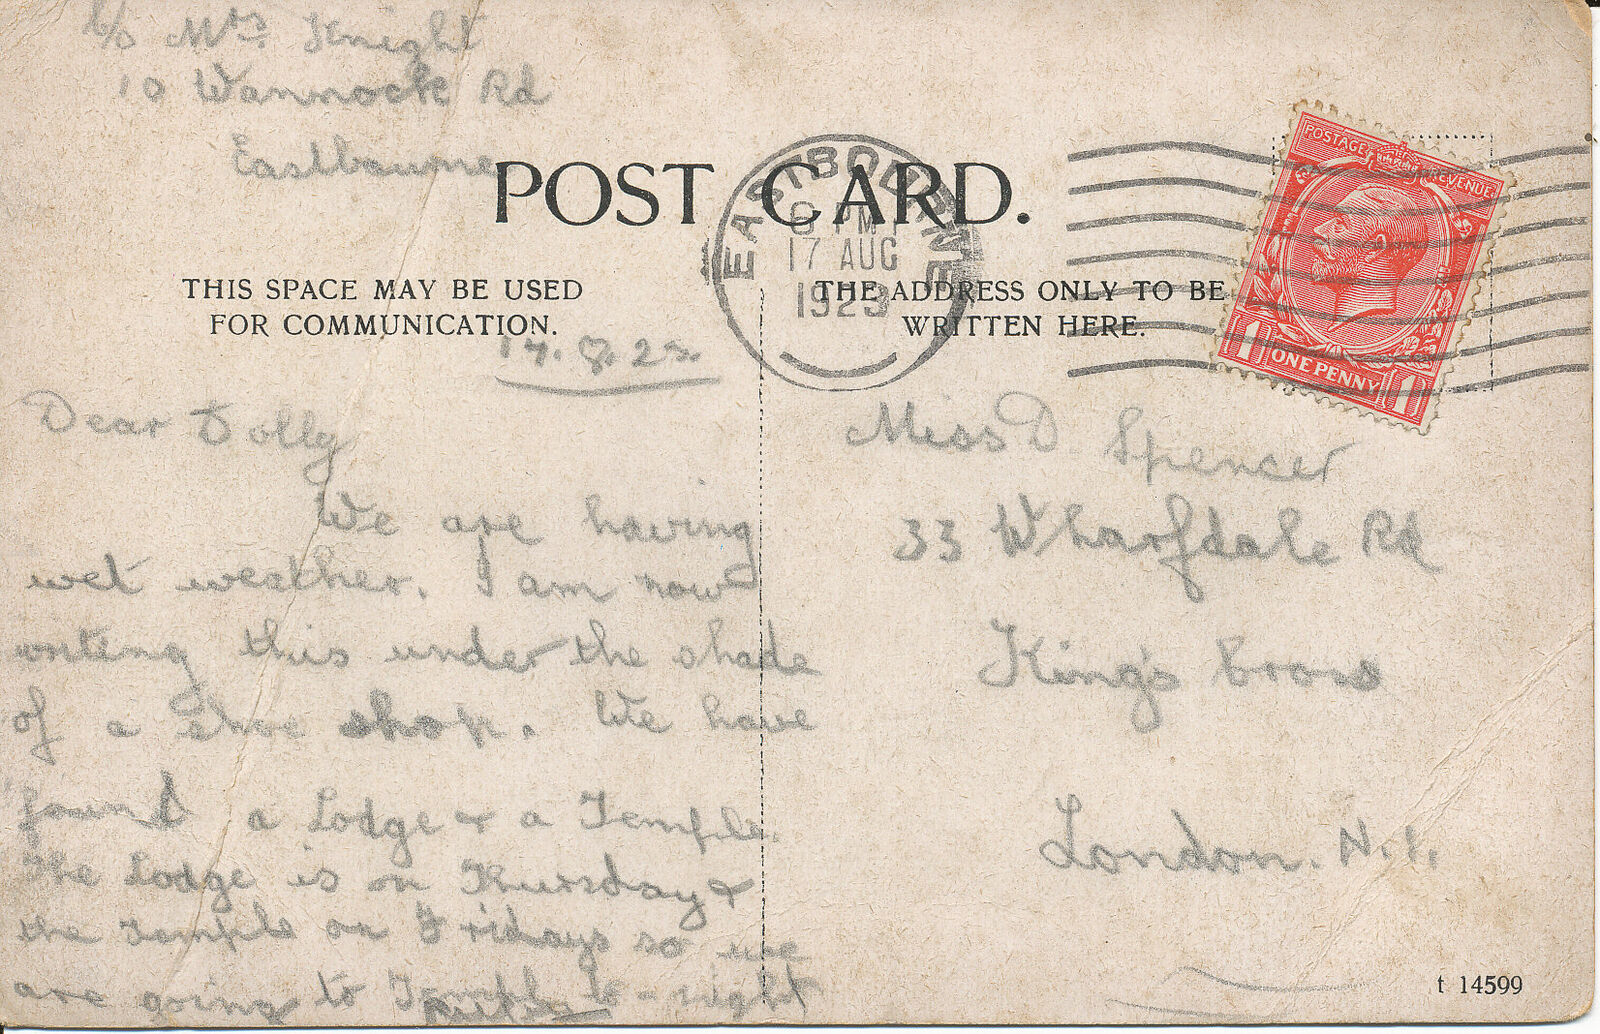 c/o Mrs Knight
10 Wannock Rd
Eastbourne
POST CARD.
EASTBOURNE
PM
17 AUG
1923
POSTAGE REVENUE
1 ONE PENNY 1
THIS SPACE MAY BE USED
FOR COMMUNICATION.
THE ADDRESS ONLY TO BE
WRITTEN HERE.
17.8.23
Dear Dolly
We are having
wet weather. I am now
writing this under the shade
of a shoe shop. We have
found a Lodge & a Temple.
The Lodge is on Thursday &
the Temple on Fridays so we
are going to Temple to-night
Miss D. Spencer
33 Wharfdale Rd
King's Cross
London. N.1.
t 14599